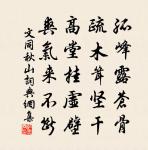 孤峰露蒼骨
疏木聳堅干
高堂挂虛壁
爽氣來不斷
文同秋山詞典網集